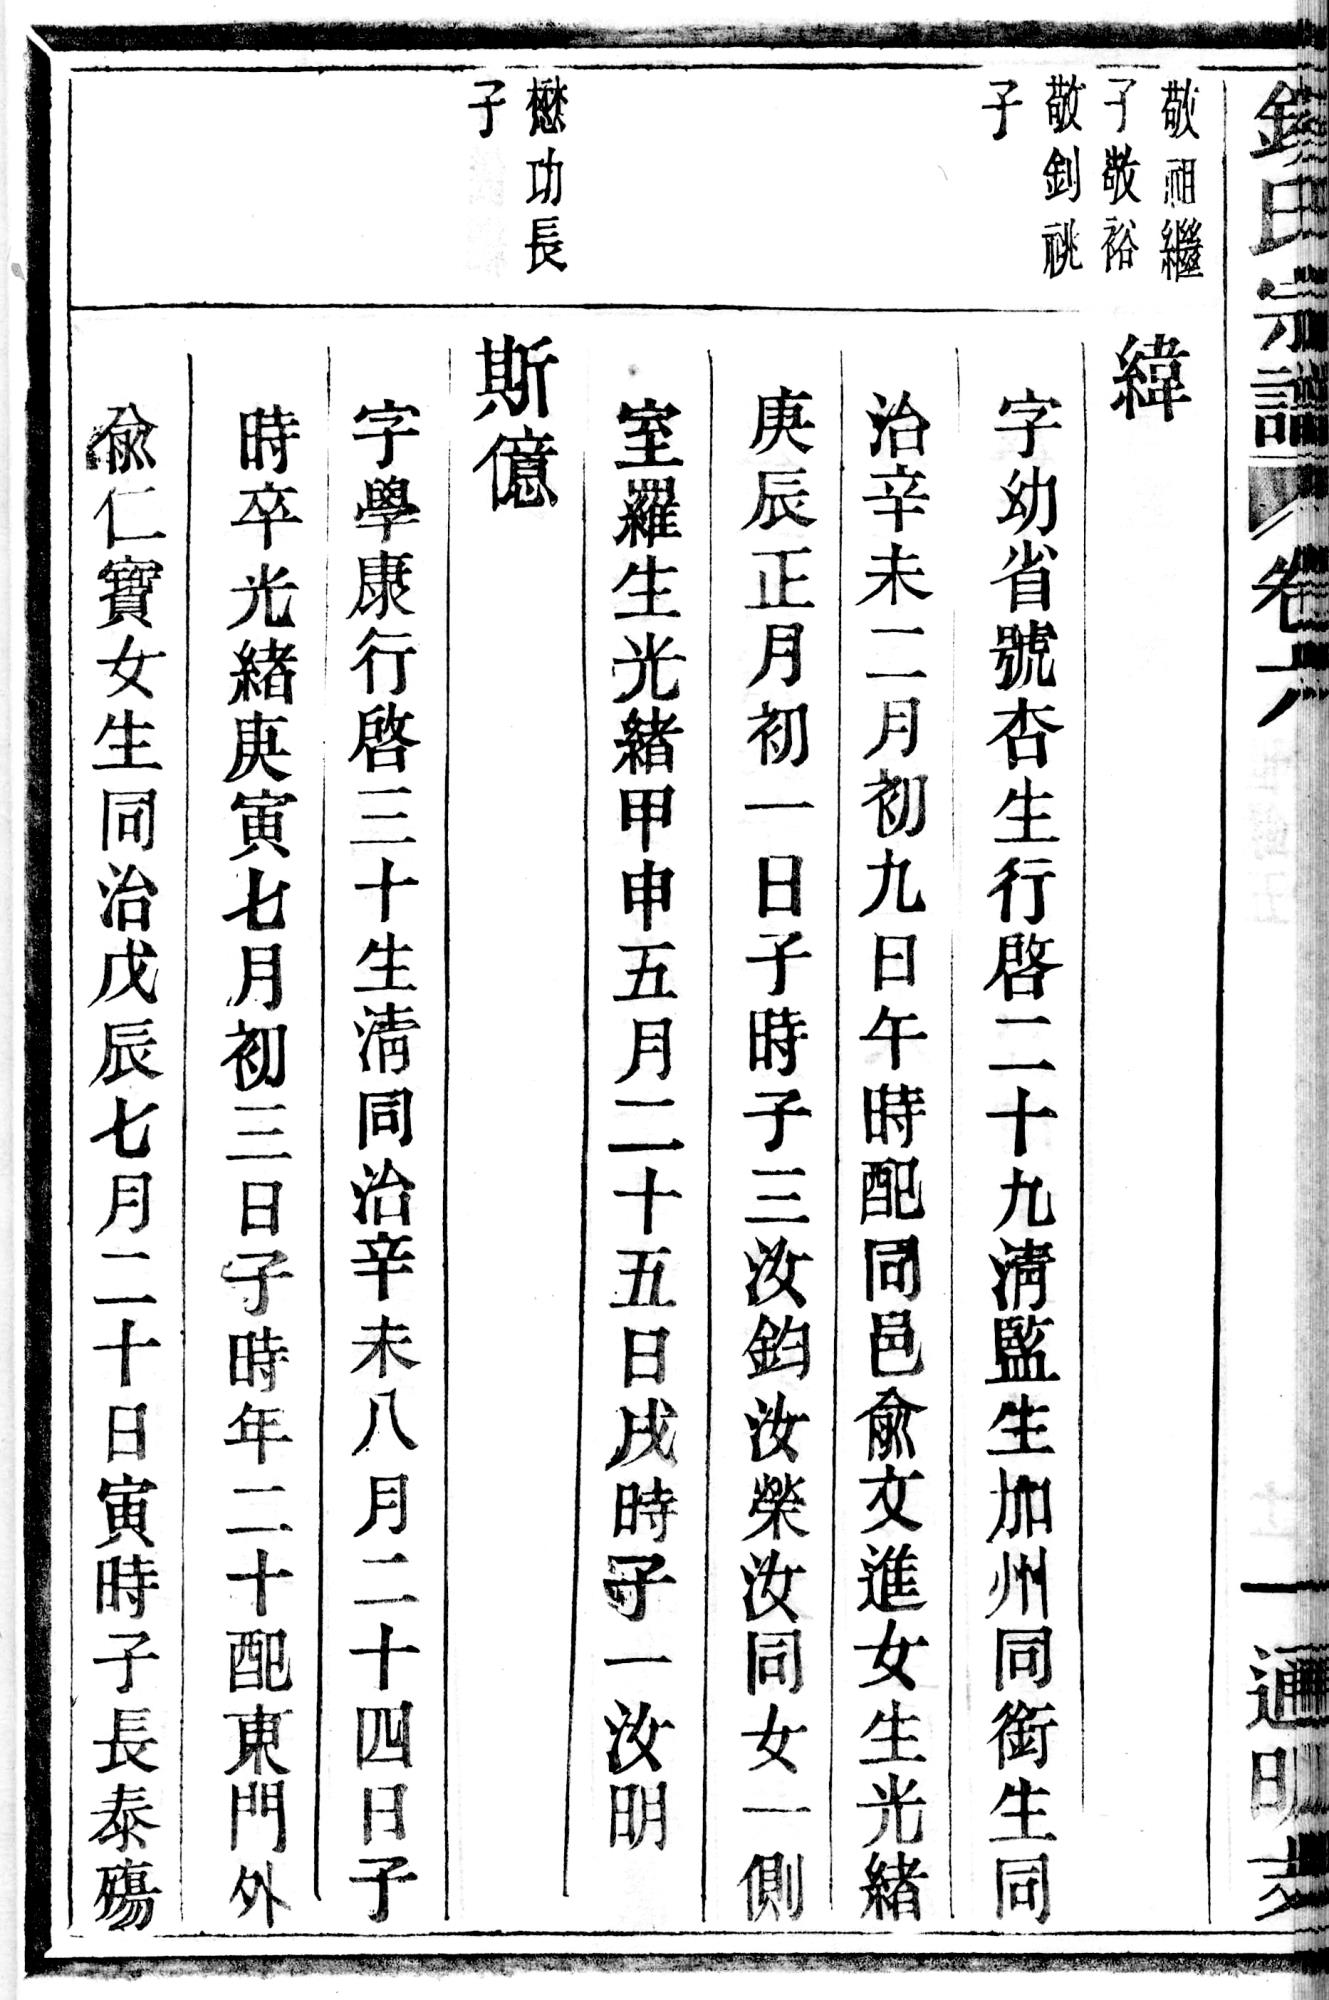 錢氏宗譜
卷六
一
通明支
敬祖繼
子敬裕
敬釗祧
子
緯
字幼省號杏生行啓二十九淸監生加州同銜生同
治辛未二月初九日午時配同邑俞文進女生光緖
庚辰正月初一日子時子三汝鈞汝榮汝同女一側
室羅生光緖甲申五月二十五日戌時子一汝明
懋功長
子
斯億
字學康行啓三十生淸同治辛未八月二十四日子
時卒光緖庚寅七月初三日子時年二十配東門外
俞仁寶女生同治戊辰七月二十日寅時子長泰殤